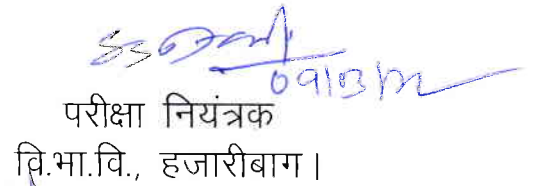 09/03/
परीक्षा नियंत्रक
वि.भा.वि., हजारीबाग।